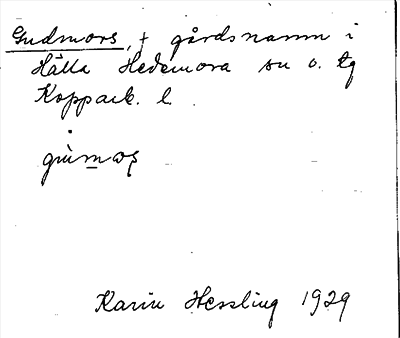 Gudmors, † gårdsnamn i
Hälla Hedemora sn o. tg
Kopparb. l.
Karin Hessling 1929